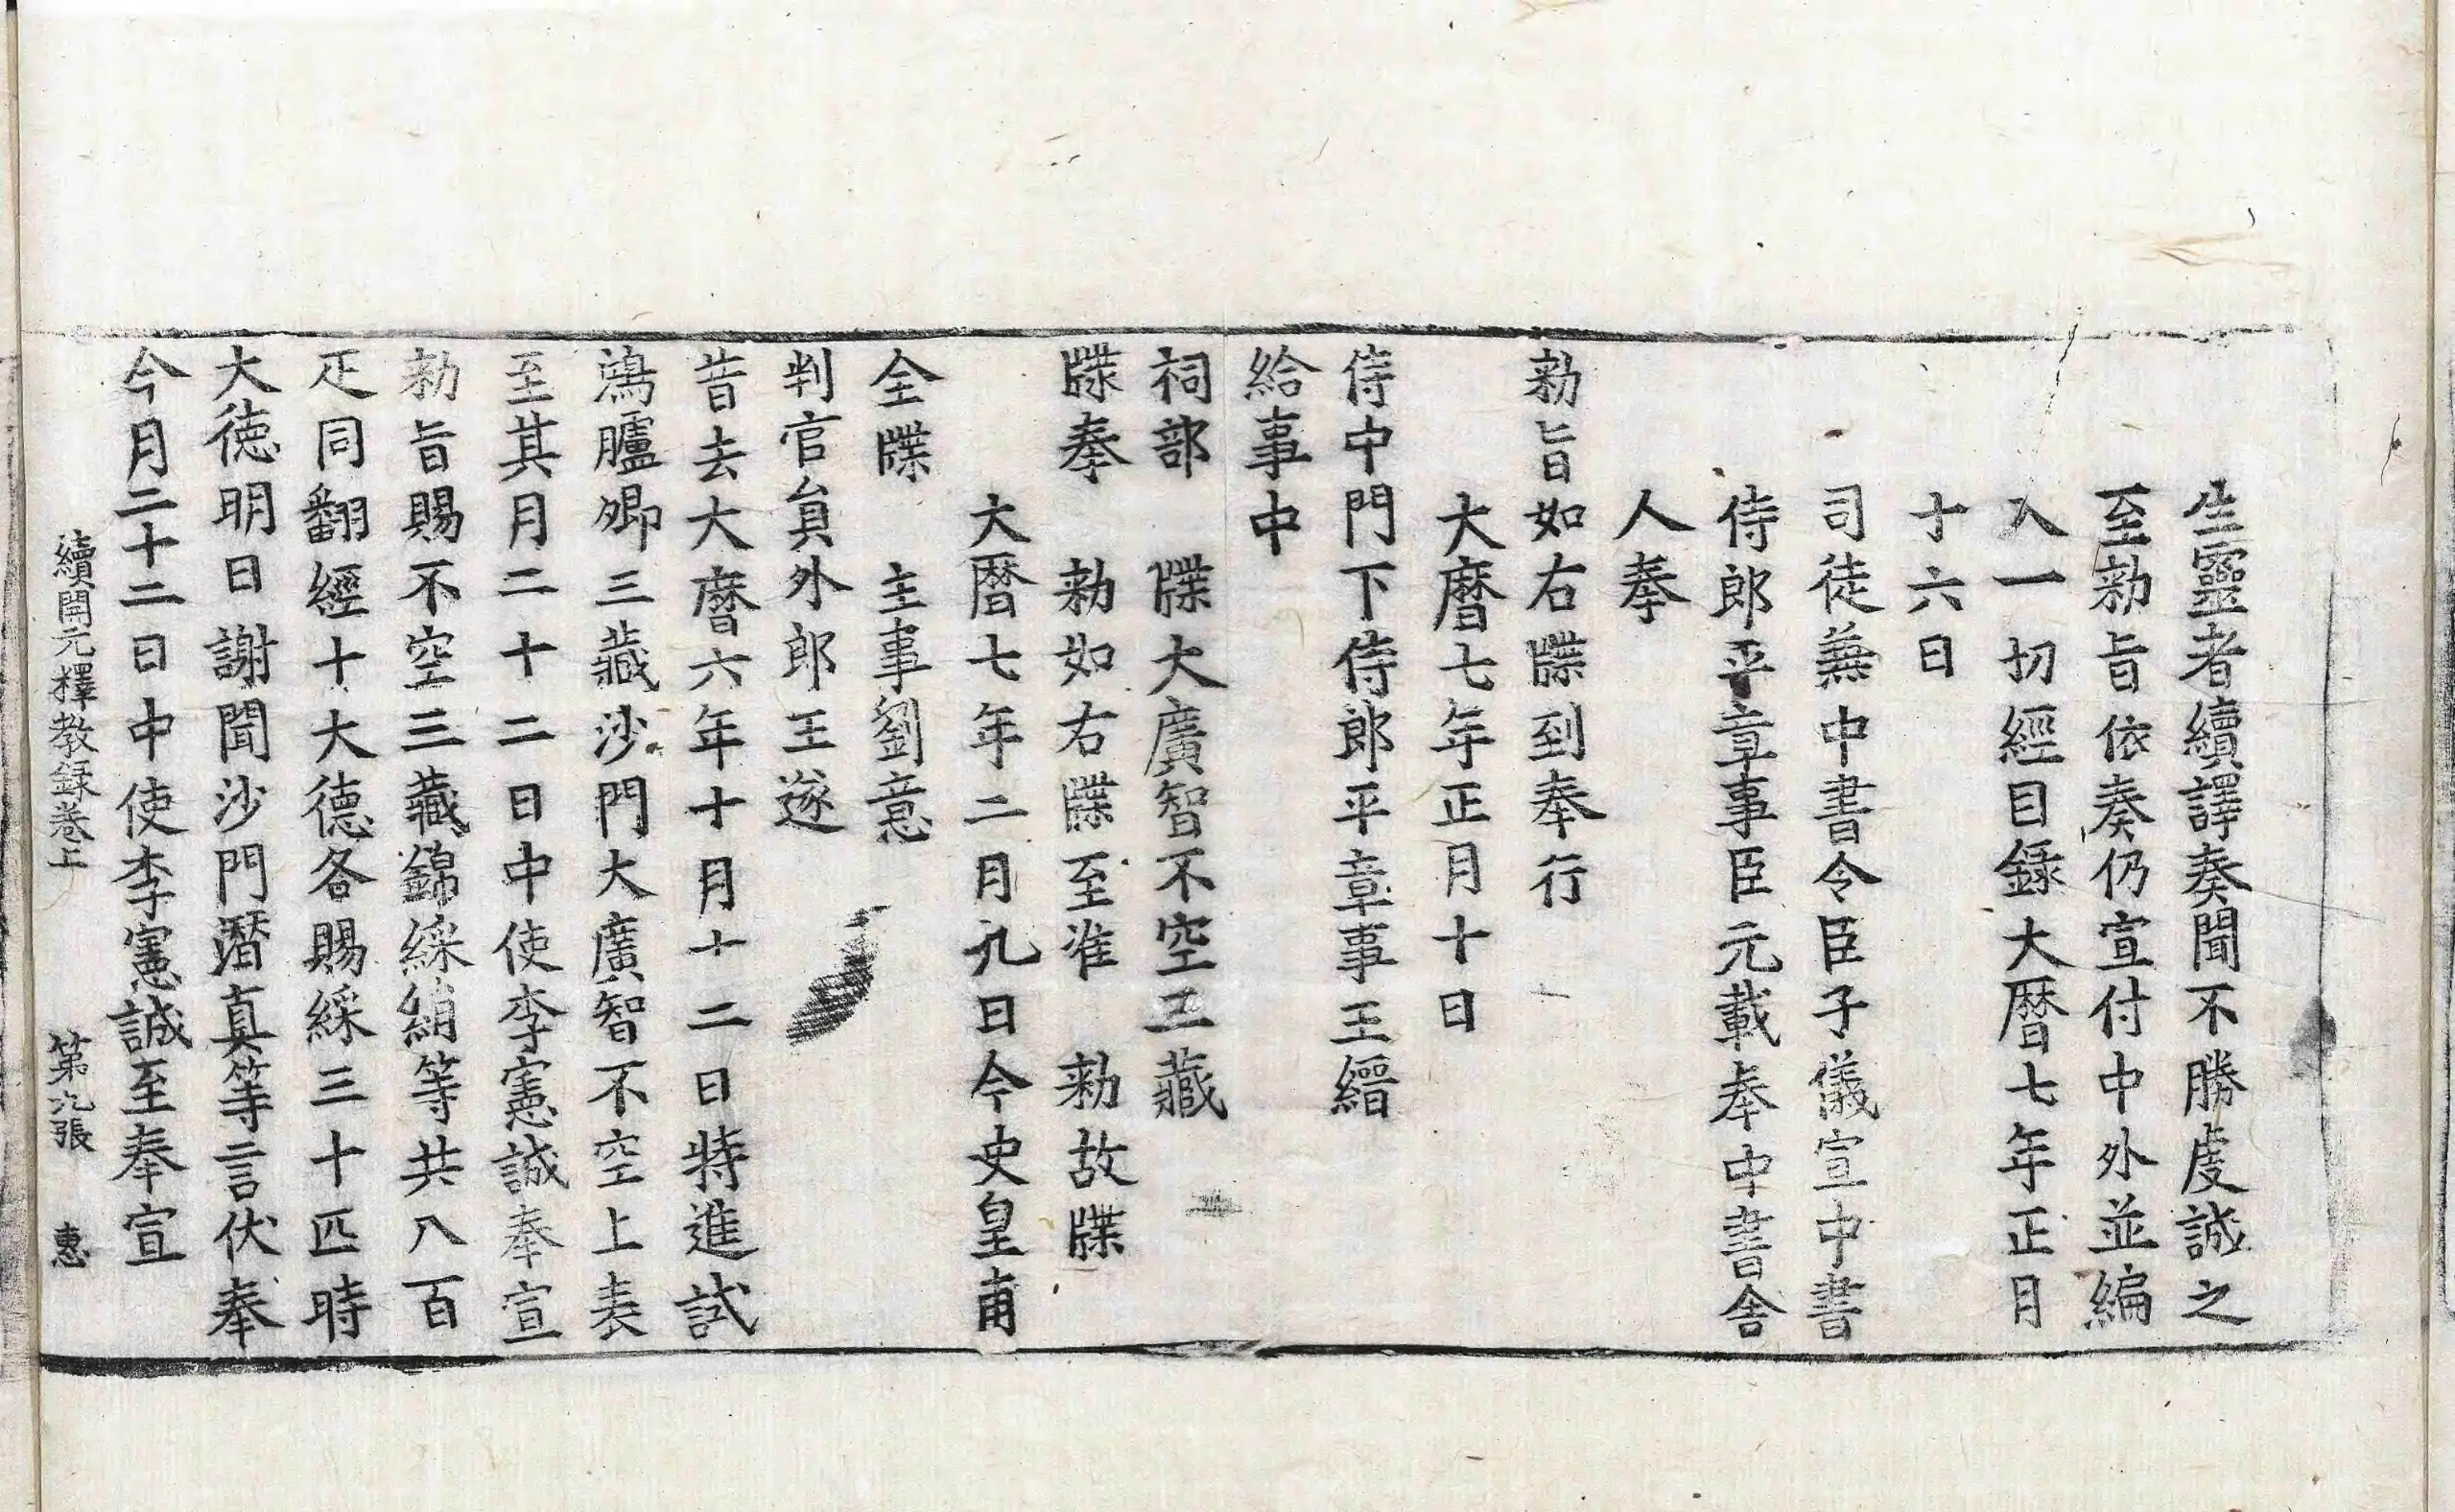 生靈者續譯奏聞不勝虔誠之
至勑旨依奏仍宣付中外並編
入一切經目錄大曆七年正月
十六日
司徒兼中書令臣子儀宣中書
侍郎平章事臣元載奉中書舍
人奉
勑旨如右牒到奉行
大曆七年正月十日
侍中門下侍郎平章事王縉
給事中
祠部　牒大廣智不空三藏
牒奉　勑如右牒至准　勑故牒
大曆七年二月九日令史皇甫
全牒　主事劉意
判官員外郎王遂
昔去大曆六年十月十二日特進試
鴻臚卿三藏沙門大廣智不空上表
至其月二十二日中使李憲誠奉宣
勑旨賜不空三藏錦綵絹等共八百
疋同翻經十大德各賜綵三十匹時
大德明日謝聞沙門潛真等言伏奉
今月二十二日中使李憲誠至奉宣
續開元釋教錄卷上　第九張　惠